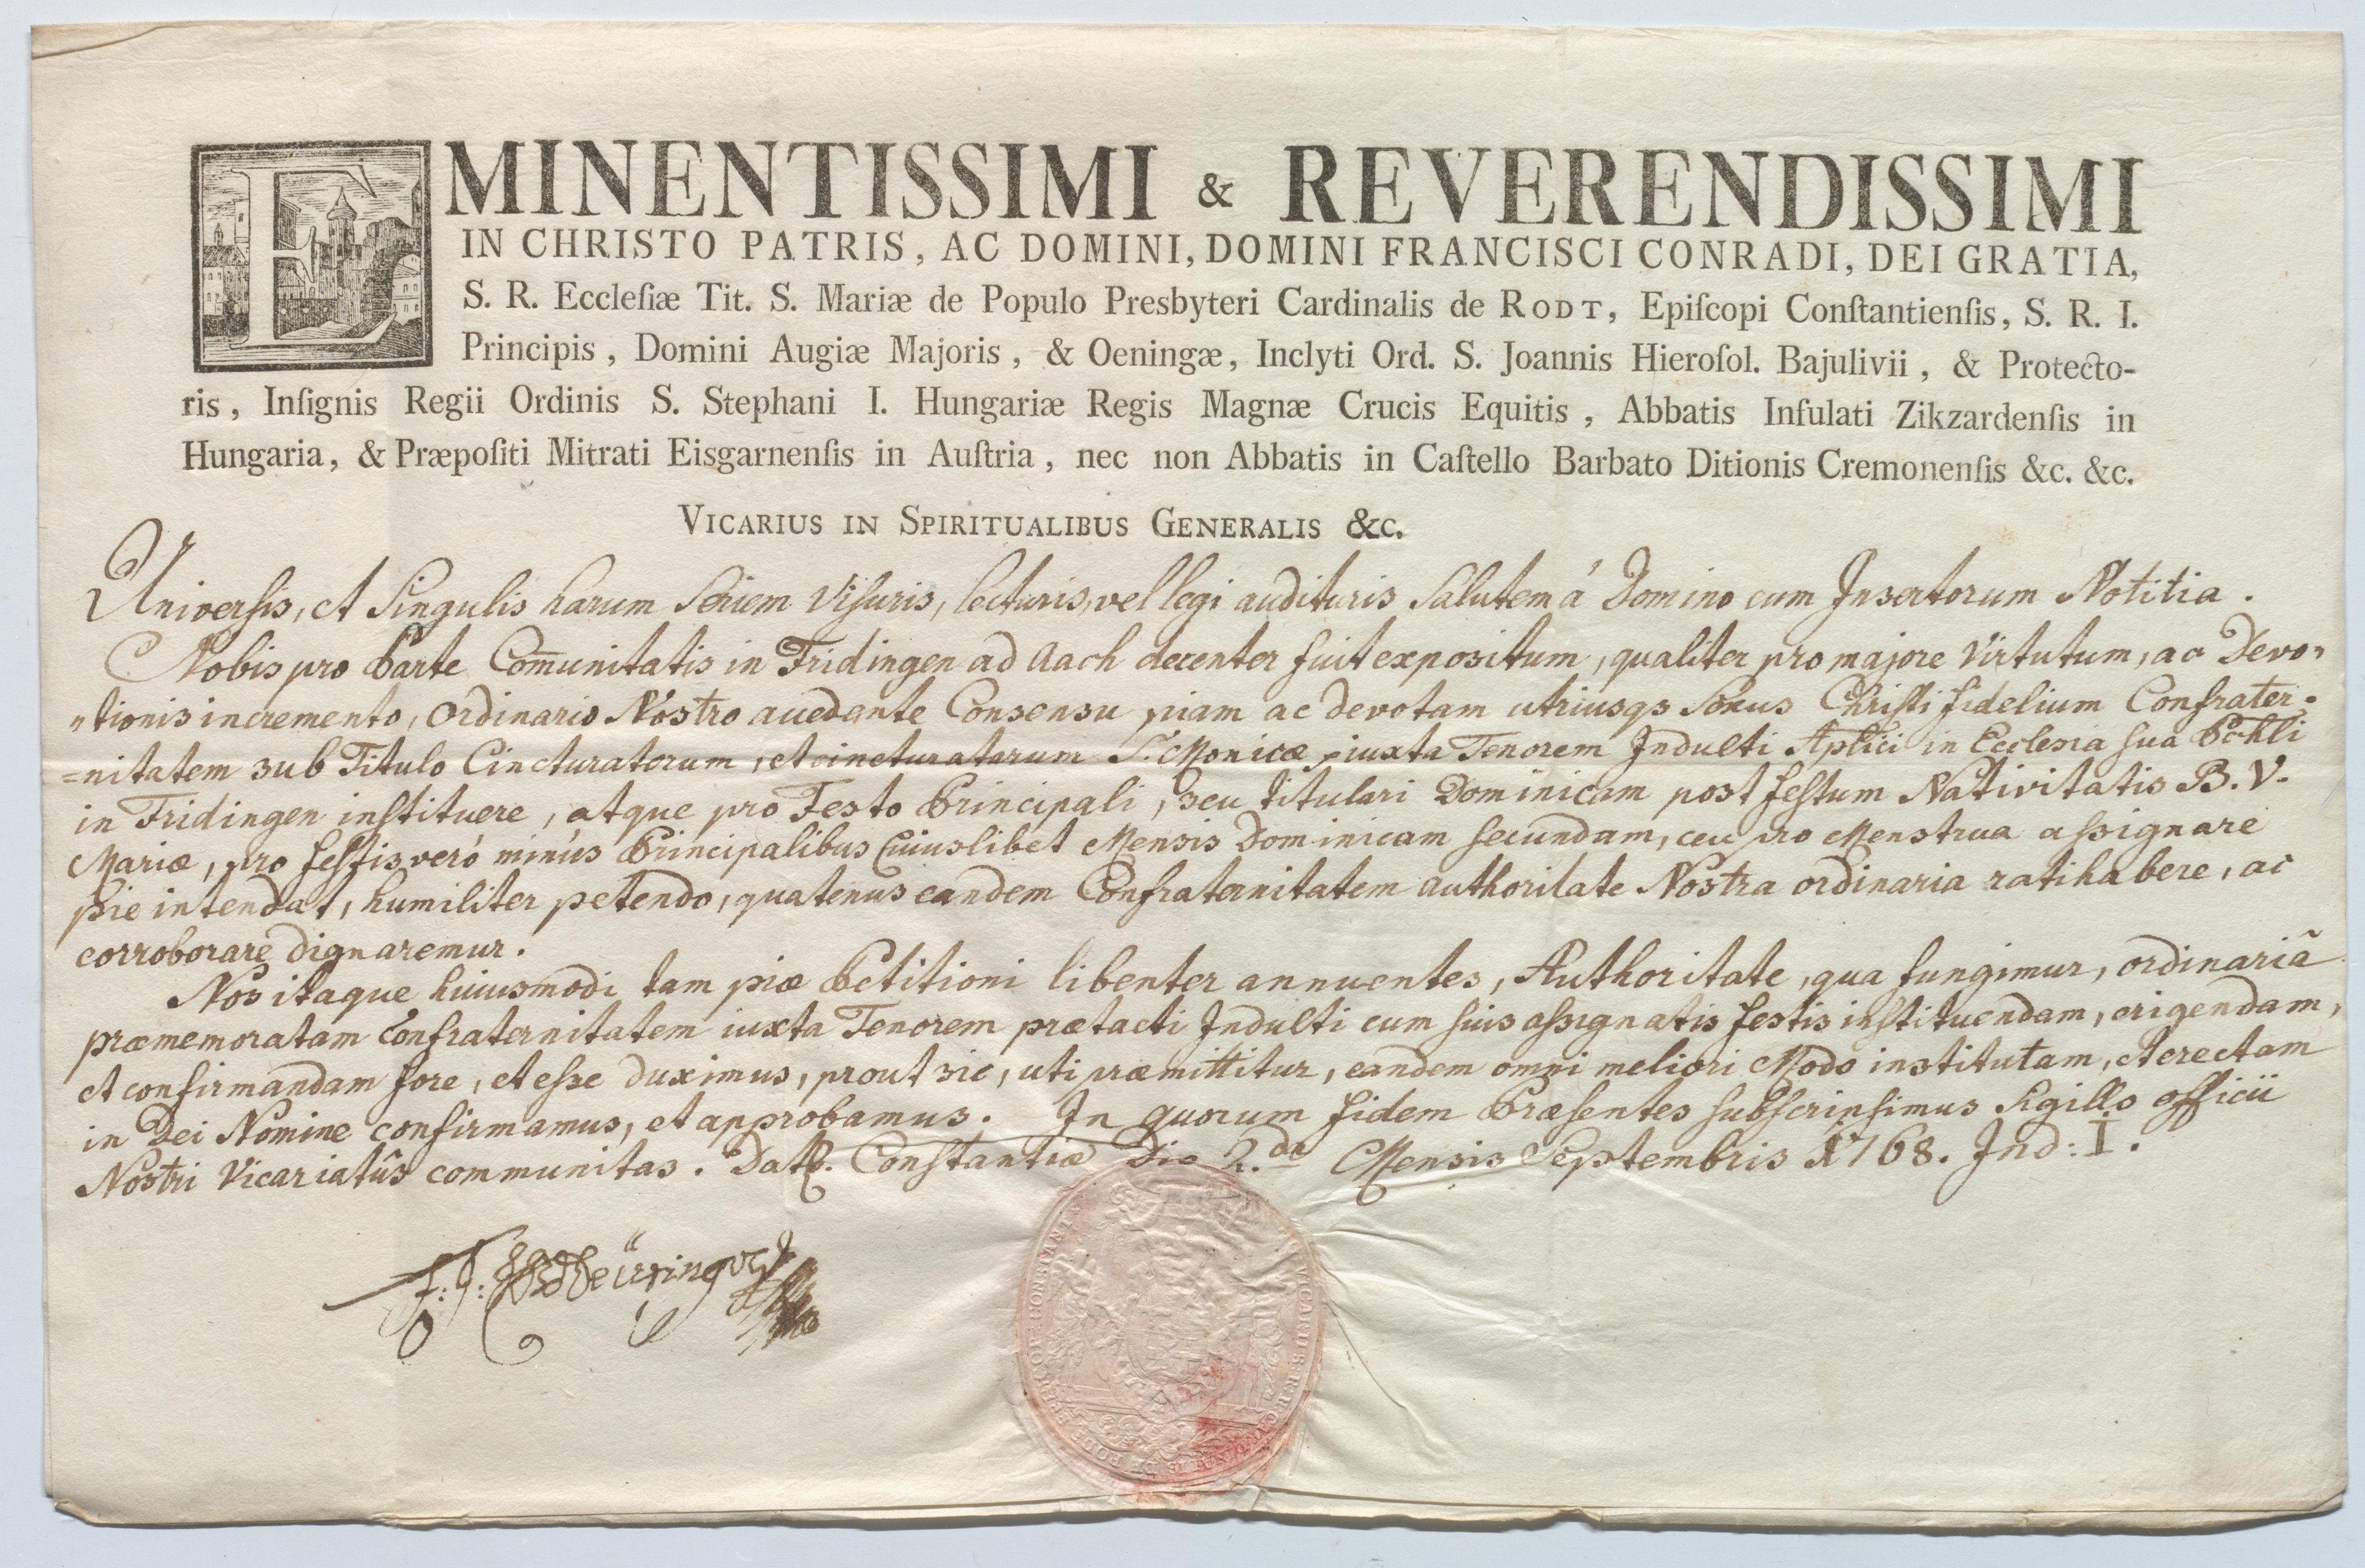 EMINENTISSIMI & REVERENDISSIMI
IN CHRISTO PATRIS, AC DOMINI, DOMINI FRANCISCI CONRADI, DEI GRATIA,
S. R. Eccleſiæ Tit. S. Mariæ de Populo Presbyteri Cardinalis de RODT, Epiſcopi Conſtantienſis, S. R. I.
Principis, Domini Augiæ Majoris, & Oeningæ, Inclyti Ord. S. Joannis Hieroſol. Bajulivii, & Protecto-
ris, Inſignis Regii Ordinis S. Stephani I. Hungariæ Regis Magnæ Crucis Equitis, Abbatis Infulati Zikzardenſis in
Hungaria, & Præpoſiti Mitrati Eisgarnenſis in Auſtria, nec non Abbatis in Caſtello Barbato Ditionis Cremonenſis &c. &c.
VICARIUS IN SPIRITUALIBUS GENERALIS &c.
Universis, et Singulis harum Seriem Visuris, lecturis, vel legi audituris Salutem á Domino cum Insertorum Notitia.
Nobis pro Parte Com̄unitatis in Fridingen ad Aach decenter fuit expositum, qualiter pro majore Virtutum, ac Devo„
„tionis incremento, Ordinario Nostro accedente Consensu piam ac devotam utriusqs Sexus Christi fidelium Confrater=
=nitatem sub Titulo Cincturatorum, et cincturatarum S. Monicæ, iuxta Tenorem Indulti Aplici in Ecclesia sua Pchli
in Fridingen instituere, atque pro Festo Principali, seu titulari Dominicam post festum Nativitatis B. V.
Mariæ, pro festis veró minús Principalibus Cuiuslibet Mensis Dominicam secundam, ceu pro Menstrua assignare
pie intendat, humiliter petendo, quatenus eandem Confraternitatem authoritate Nostra ordinaria ratihabere, ac
corroborare dignaremur.
Nos itaque huiusmodi tam piæ Petitioni libenter annuentes, Authoritate, qua fungimur, ordinariâ
præmemoratam Confraternitatem iuxta Tenorem prætacti Indulti cum suis assignatis festis instituendam, erigendam,
et confirmandam fore, et esse duximus, prout sic, uti præmittitur, eandem omni meliori Modo institutam, et erectam
in Dei Nomine confirmamus, et approbamus. In quorum fidem Præsentes subscripsimus Sigillo officii
Nostri Vicariatûs communitas. Dat. Constantiæ Die 2.da Mensis Septembris 1768. Ind: I.